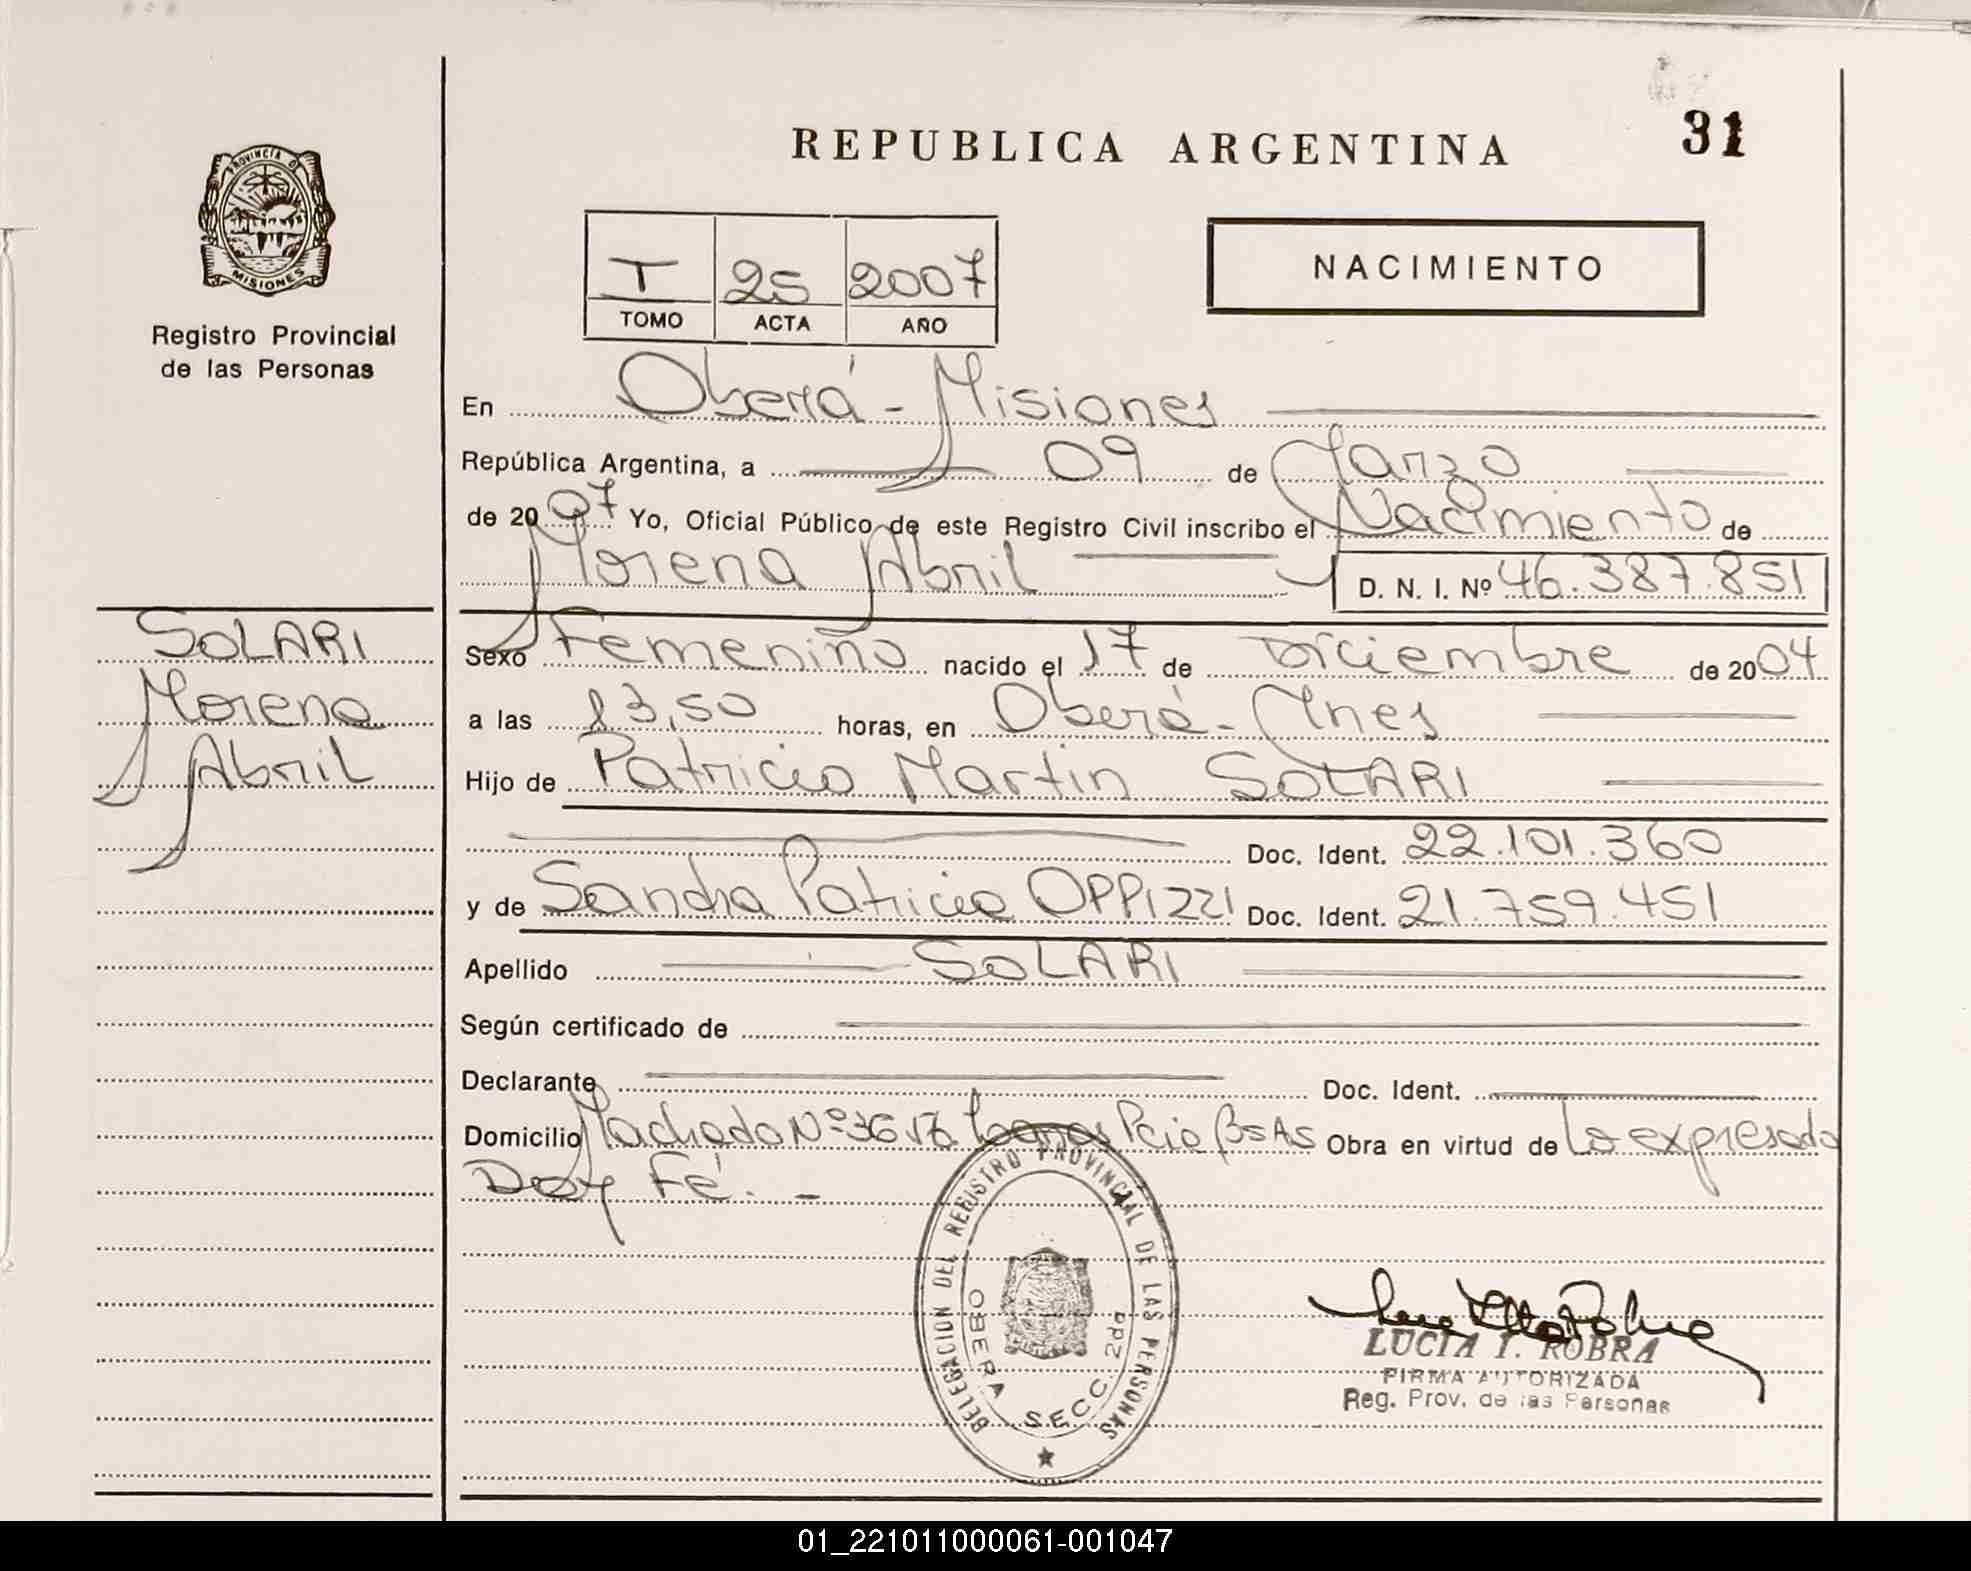 REPUBLICA ARGENTINA
31
PROVINCIA DE
MISIONES
Registro Provincial
de las Personas
T 25 2007
TOMO ACTA AÑO
NACIMIENTO
En Oberá - Misiones
República Argentina, a 09 de Marzo
de 2007 Yo, Oficial Público de este Registro Civil inscribo el Nacimiento de
Morena Abril D. N. I. Nº 46.387.851
SOLARI
Morena
Abril
Sexo Femenino nacido el 17 de Diciembre de 2004
a las 13,50 horas, en Oberá - Mnes
Hijo de Patricio Martin SOLARI
Doc. Ident. 22.101.360
y de Sandra Patricia OPPIZZI Doc. Ident. 21.759.451
Apellido SOLARI
Según certificado de
Declarante Doc. Ident.
Domicilio Machado Nº Pcia BsAs Obra en virtud de Lo expresado
Doy Fé. -
DELEGACION DEL REGISTRO PROVINCIAL DE LAS PERSONAS
OBERA SECC. 2da
LUCIA I. ROBRA
FIRMA AUTORIZADA
Reg. Prov. de las Personas
01_221011000061-001047